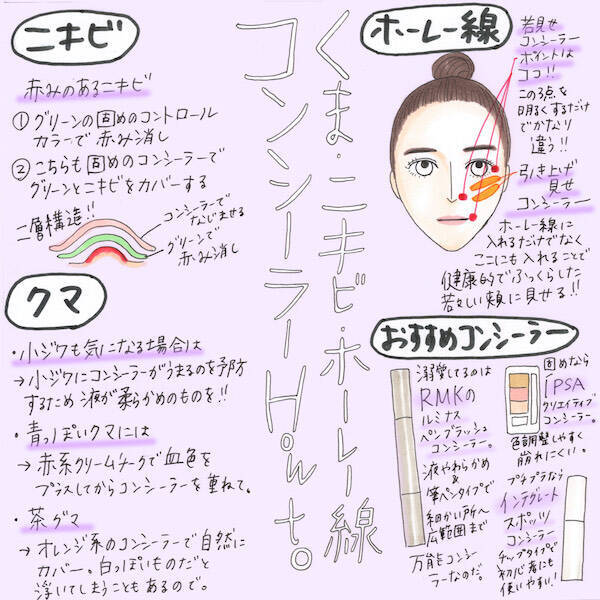 くま・ニキビ・ホーレー線
コンシーラーHow to。
ニキビ
赤みのあるニキビ
①グリーンの固めのコントロール
カラーで赤み消し
②こちらも固めのコンシーラーで
グリーンとニキビをカバーする
二層構造!!
コンシーラーで
なじませる
グリーンで
赤み消し
クマ
・小ジワも気になる場合は
→小ジワにコンシーラーがうまるのを予防
するため液が柔らかめのものを!!
・青っぽいクマには
→赤系クリームチークで血色を
プラスしてからコンシーラーを重ねて。
・茶グマ
→オレンジ系のコンシーラーで自然に
カバー。白っぽいものだと
浮いてしまうこともあるので。
ホーレー線
若見せ
コンシーラー
ポイントは
ココ!!
この3点を
明るくするだけ
でかなり
違う!!
引き上げ
見せ
コンシーラー
ホーレー線に
入れるだけでなく
ここにも入れることで
健康的でふっくらした
若々しい頬に見せる!!
おすすめコンシーラー
溺愛してるのは
RMKの
ルミナス
ペンブラッシュ
コンシーラー。
液やわらかめ
&
筆ペンタイプで
細かい所へ
広範囲まで
万能コンシー
ラーなのだ。
固めなら
IPSA
クリエイティブ
コンシーラー。
色調整しやすく
崩れにくい。
プチプラなら
インテグレート
スポッツ
コンシーラー
チップタイプで
初心者にも
使いやすい!